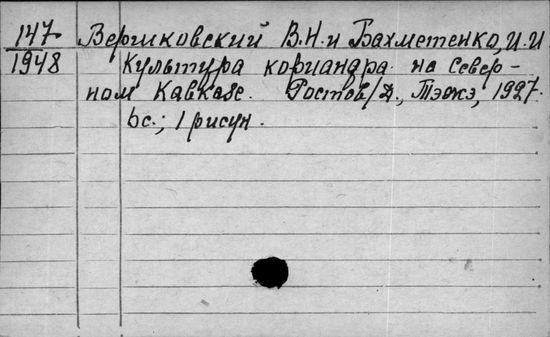 147 Вершковский В.Н. и Бахметенко, И.И
1948 Культура кориандра на Север-
ном Кавказе. Ростов/Д., Тэжэ, 1927.
6с.; 1 рисун.